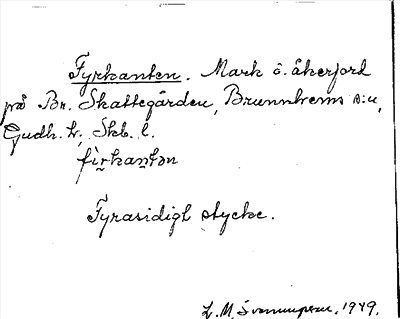 Fyrkanten. Mark o. åkerjord
på Br. Skattegården, Brunnhems s:n,
Gudh. hr, Skb. l.
fìrkantən
Fyrasidigt stycke.
L. M. 1949.